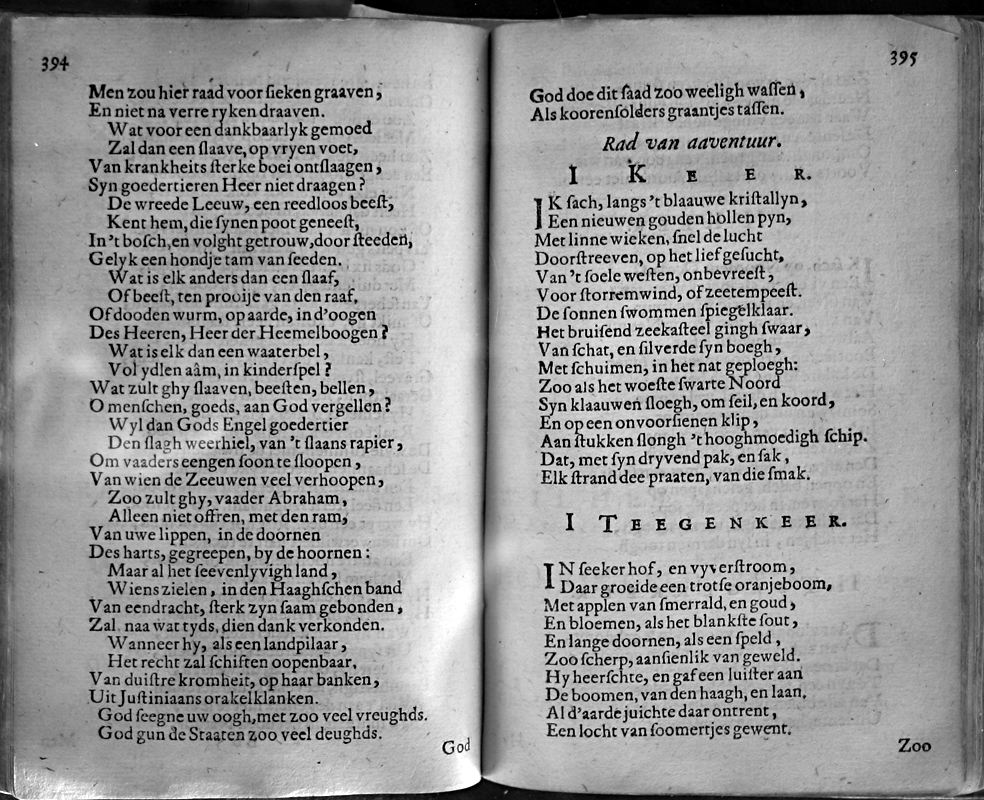 394
Men zou hier raad voor ſieken graaven,
En niet na verre ryken draaven.
Wat voor een dankbaarlyk gemoed
Zal dan een ſlaave, op vryen voet,
Van krankheits ſterke boei ontſlaagen,
Syn goedertieren Heer niet draagen?
De wreede Leeuw, een reedloos beeſt,
Kent hem, die ſynen poot geneeſt,
In 't boſch, en volght getrouw, door ſteeden,
Gelyk een hondje tam van ſeeden.
Wat is elk anders dan een ſlaaf,
Of beeſt, ten prooije van den raaf,
Of dooden wurm, op aarde, in d'oogen
Des Heeren, Heer der Heemelboogen?
Wat is elk dan een waaterbel,
Vol ydlen aâm, in kinderſpel?
Wat zult ghy ſlaaven, beeſten, bellen,
O menſchen, goeds, aan God vergellen?
Wyl dan Gods Engel goedertier
Den ſlagh weerhiel, van 't ſlaans rapier,
Om vaaders eengen ſoon te ſloopen,
Van wien de Zeeuwen veel verhoopen,
Zoo zult ghy, vaader Abraham,
Alleen niet offren, met den ram,
Van uwe lippen, in de doornen
Des harts, gegreepen, by de hoornen:
Maar al het ſeevenlyvigh land,
Wiens zielen, in den Haaghſchen band
Van eendracht, ſterk zyn ſaam gebonden,
Zal naa wat tyds, dien dank verkonden.
Wanneer hy, als een landpilaar,
Het recht zal ſchiften oopenbaar,
Van duiſtre kromheit, op haar banken,
Uit Juſtiniaans orakelklanken.
God ſeegne uw oogh, met zoo veel vreughds.
God gun de Staaten zoo veel deughds.
God
395
God doe dit ſaad zoo weeligh waſſen,
Als koorenſolders graantjes taſſen.
Rad van aaventuur.
I KEER.
IK ſach, langs 't blaauwe kriſtallyn,
Een nieuwen gouden hollen pyn,
Met linne wieken, ſnel de lucht
Doorſtreeven, op het lief geſucht,
Van 't ſoele weſten, onbevreeſt,
Voor ſtorremwind, of zeetempeeſt.
De ſonnen ſwommen ſpiegelklaar.
Het bruiſend zeekaſteel gingh ſwaar,
Van ſchat, en ſilverde ſyn boegh,
Met ſchuimen, in het nat geploegh:
Zoo als het woeſte ſwarte Noord
Syn klaauwen ſloegh, om ſeil, en koord,
En op een onvoorſienen klip,
Aan ſtukken ſlongh 't hooghmoedigh ſchip.
Dat, met ſyn dryvend pak, en ſak,
Elk ſtrand dee praaten, van die ſmak.
I TEEGENKEER.
IN ſeeker hof, en vyverſtroom,
Daar groeide een trotſe oranjeboom,
Met applen van ſmerrald, en goud,
En bloemen, als het blankſte ſout,
En lange doornen, als een ſpeld,
Zoo ſcherp, aanſienlik van geweld.
Hy heerſchte, en gaf een luiſter aan
De boomen, van den haagh, en laan.
Al d'aarde juichte daar ontrent,
Een locht van ſoomertjes gewent.
Zoo